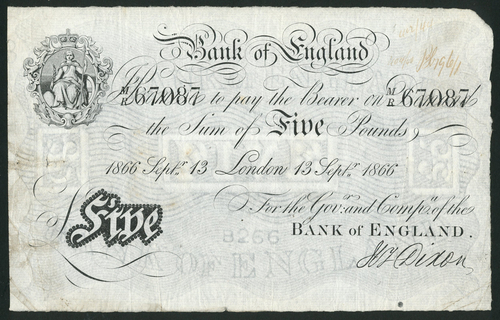 Bank of England
M/R 67087 to pay the Bearer on M/R 67087
the Sum of Five Pounds
1866 Septr. 13 London 13 Septr. 1866
For the Govr. and Compa. of the
Five
BANK of ENGLAND.
B266
W Dixon